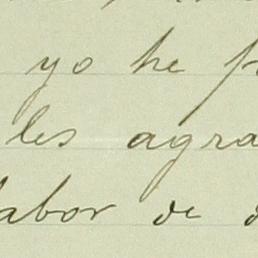 yo he
les agra
labor de